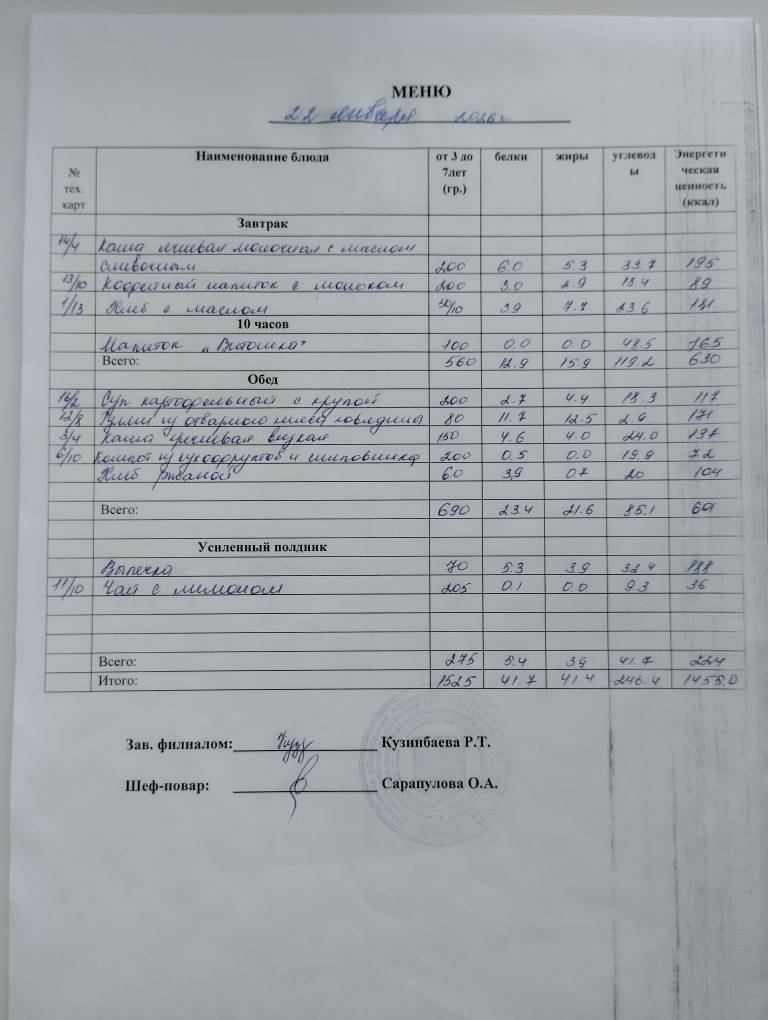 МЕНЮ
22 января 2026 г
№ тех. карт Наименование блюда от 3 до 7лет (гр.) белки жиры углеводы Энергетическая ценность (ккал)
Завтрак
14/4 Каша ячневая молочная с маслом
сливочным 200 6.0 5.3 33.7 195
13/10 Кофейный напиток с молоком 200 3.0 2.9 13.4 89
1/13 Хлеб с маслом 50/10 3.9 7.7 23.6 181
10 часов
Напиток „Витошка" 100 0.0 0.0 48.5 165
Всего: 560 12.9 15.9 119.2 630
Обед
16/2 Суп картофельный с крупой 200 2.7 4.4 18.3 117
12/8 Гуляш из отварного мяса говядины 80 11.7 12.5 2.9 171
3/4 Каша гречневая вязкая 150 4.6 4.0 24.0 137
6/10 Компот из сухофруктов и шиповника 200 0.5 0.0 19.9 72
Хлеб ржаной 60 3.9 0.7 20 104
Всего: 690 23.4 21.6 85.1 601
Усиленный полдник
Выпечка 70 5.3 3.9 32.4 188
11/10 Чай с лимоном 205 0.1 0.0 9.3 36
Всего: 275 5.4 3.9 41.7 224
Итого: 1525 41.7 41.4 246.4 1455.0
Зав. филиалом: Кузинбаева Р.Т.
Шеф-повар: Сарапулова О.А.